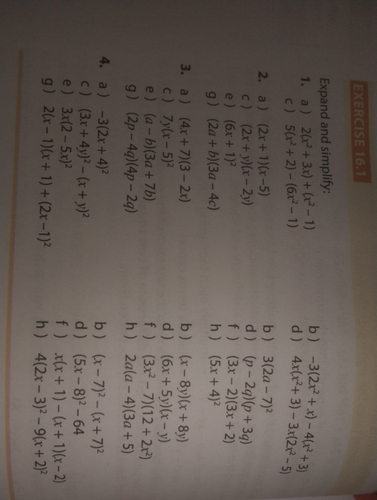 EXERCISE 16.1
Expand and simplify:
1. a) 2(x² + 3x) + (x² − 1) b) −3(2x² + x) − 4(x² + 3)
c) 5(x² + 2) − (6x² − 1) d) 4x(x² + 3) − 3x(2x² − 5)
2. a) (2x + 1)(x − 5) b) 3(2a − 7)²
c) (2x + y)(x − 2y) d) (p − 2q)(p + 3q)
e) (6x + 1)² f) (3x − 2)(3x + 2)
g) (2a + b)(3a − 4c) h) (5x + 4)²
3. a) (4x + 7)(3 − 2x) b) (x − 8y)(x + 8y)
c) 7y(x − 5)² d) (6x + 5y)(x − y)
e) (a − b)(3a + 7b) f) (3x² − 7)(12 + 2x²)
g) (2p − 4q)(4p − 2q) h) 2a(a − 4)(3a + 5)
4. a) −3(2x + 4)² b) (x − 7)² − (x + 7)²
c) (3x + 4y)² − (x + y)² d) (5x − 8)² − 64
e) 3x(2 − 5x)² f) x(x + 1) − (x + 1)(x − 2)
g) 2(x − 1)(x + 1) + (2x − 1)² h) 4(2x − 3)² − 9(x + 2)²